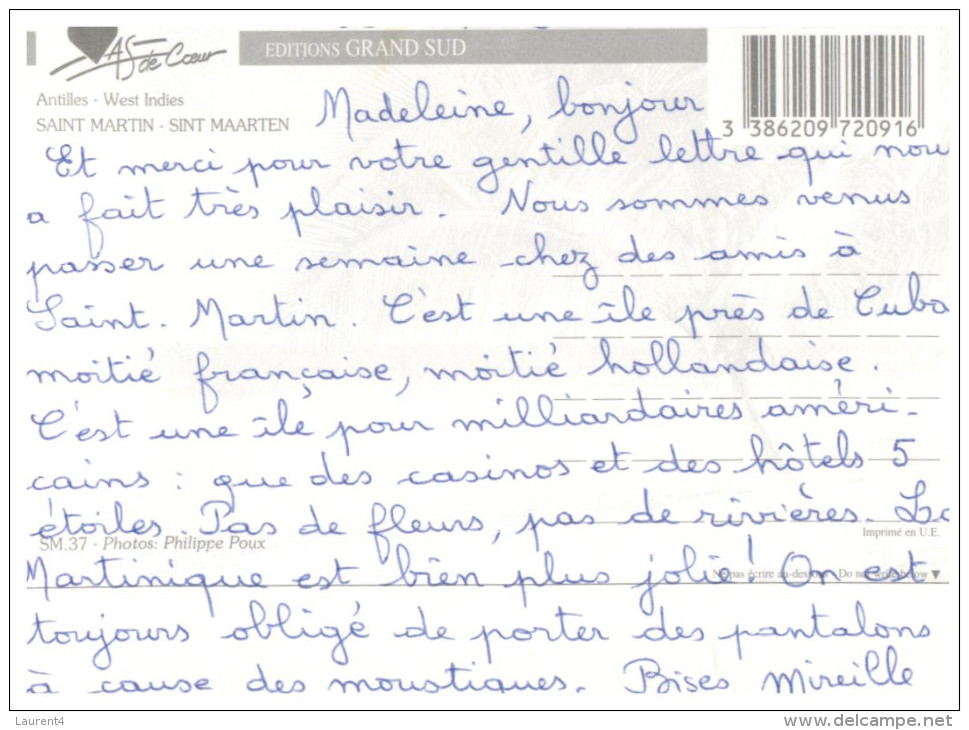 As de Cœur
EDITIONS GRAND SUD
Antilles - West Indies
SAINT MARTIN - SINT MAARTEN
3 386209 720916
Madeleine, bonjour
Et merci pour votre gentille lettre qui nou
a fait très plaisir. Nous sommes venus
passer une semaine chez des amis à
Saint. Martin. C'est une île près de Cuba
moitié française, moitié hollandaise.
C'est une île pour milliardaires améri-
cains : que des casinos et des hôtels 5
étoiles. Pas de fleurs, pas de rivières. La
SM.37 - Photos: Philippe Poux
Imprimé en U.E.
Martinique est bien plus jolie! On est
Ne pas écrire au-dessous Do not write below ▼
toujours obligé de porter des pantalons
à cause des moustiques. Bises Mireille
Laurent4
www.delcampe.net